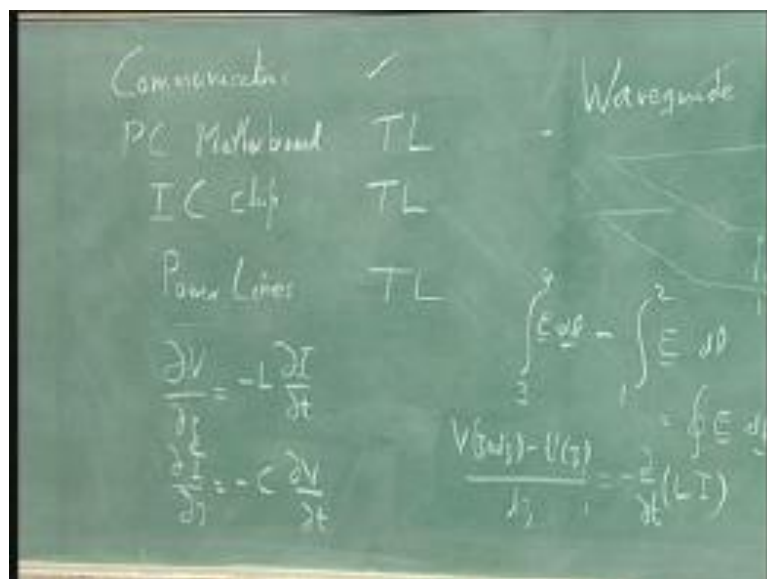 Communication ✓
PC Motherboard TL
IC chip TL
Power Lines TL
∂V/∂z = -L ∂I/∂t
∂I/∂z = -C ∂V/∂t
- Waveguide
∫ E dl - ∫₁² E dl
= ∮ E dl
V(z+dz) - V(z) / dz = -∂/∂t (LI)